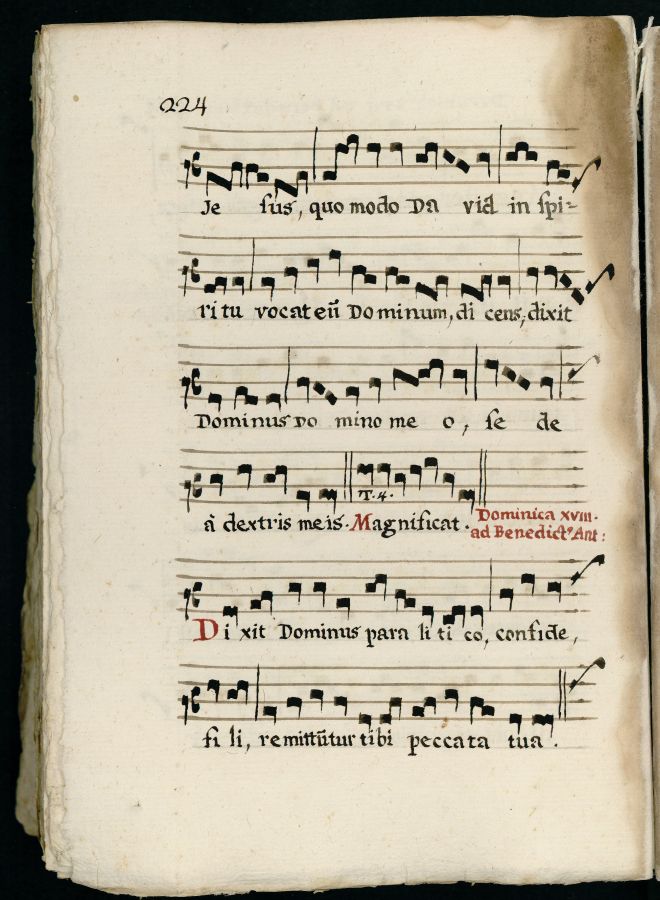 224
Je sus, quo modo Da vid in spi-
ritu vocat eũ Dominum, di cens, dixit
Dominus Do mino me o, se de
à dextris meis. Magnificat.
T. 4.
Dominica xviii.
ad Benedict⁹ Ant:
Di xit Dominus para li ti co, confide,
fi li, remittũtur tibi peccata tua.